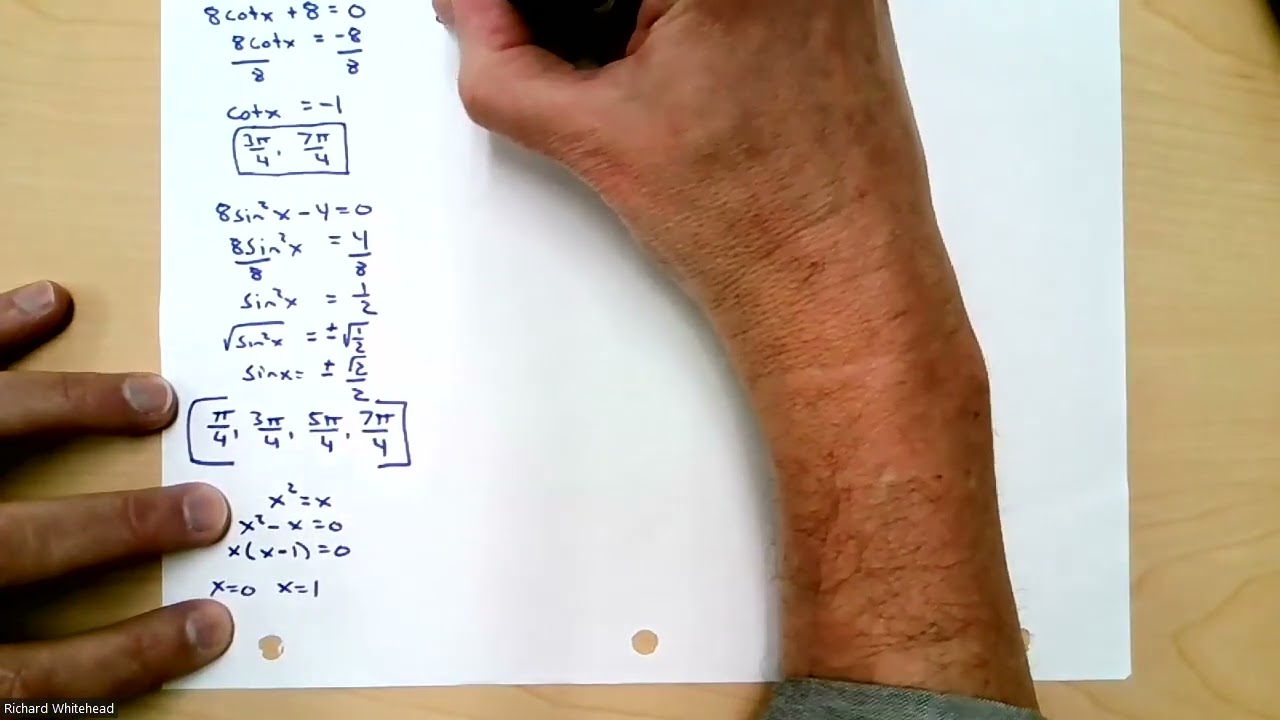 8cotx + 8 = 0
8cotx = -8
8 8
cotx = -1
3π/4, 7π/4
8sin²x - 4 = 0
8sin²x = 4
8 8
sin²x = 1/2
√sin²x = ±√1/2
sinx = ± √2/2
π/4, 3π/4, 5π/4, 7π/4
x² = x
x² - x = 0
x(x-1) = 0
x=0 x=1
Richard Whitehead